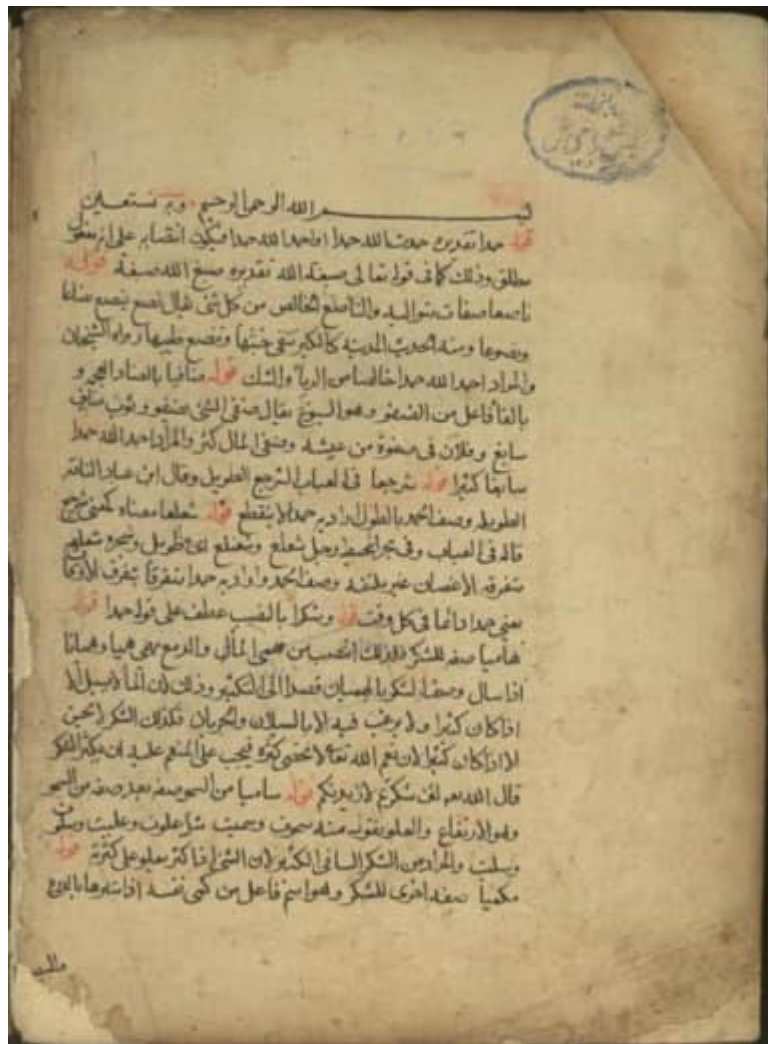 بسم الله الرحمن الرحيم وبه نستعين
قوله حمدا تقديره حمدت الله حمدا او احمد الله حمدا فيكون انتصابه على انه مفعول
مطلق وذلك كما فى قوله تعالى صبغة الله تقديره صبغ الله صبغة قوله
ناصعا صفات متواليه والناصع الخالص من كل شئ يقال نصع ينصع نصاعا
ونصوعا ومنه الحديث المدينة كالكير تنفى خبثها وتنصع طيبها رواه الشيخان
والمراد احمد الله حمدا خالصا من الريا والشك قوله ضافيا بالضاد المعجمه و
بالفا فاعل من الضفو وهو السبوغ يقال ضفى الشئ يضفو وثوب ضافى
سابغ وفلان فى ضفوة من عيشه وضفى المال كثر والمراد احمد الله حمدا
سابغا كثيرا قوله شرجعا فى العباب الشرجع الطويل وقال ابن عباد الناقه
الطويله وصف الحمد بالطول اراد به حمدا لا ينقطع قوله شعلعا معناه كمعنى شرجع
قاله فى العباب وفى شعلع اى طويل وشجره شعلعه
متفرقه الاغصان غير ملتفه وصف الحمد واراد به حمدا متفرقا بتفرق الاوقات
يعنى حمدا دائما فى كل وقت قوله وشكرا بالنصب عطف على قوله حمدا قوله
هاميا صفه للشكر فلذلك انتصب من همى الما والدمع يهمى هميا وهميانا
اذا سال وصف الشكر بالهميان قصدا الى التكثير وذلك لان الما لا يسيل الا
اذا كان كثيرا ولا يرغب فيه الا بالسيلان والجريان فكذلك الشكر لا يحسن
الا اذا كان كثيرا لان نعم الله تعالى لا تحصى كثره فيجب على المنعم عليه ان يكثر الشكر
قال الله تعالى لئن شكرتم لازيدنكم قوله ساميا من السمو صفه بعد صفه من السمو
وهو الارتفاع والعلو تقول منه سموت وسميت مثل علوت وعليت وسلوت
وسليت والمراد من الشكر السامى الكثير لان الشئ اذا كثر يعلو على كثرته قوله
مكميا صفه اخرى للشكر وهو اسم فاعل من كمى نفسه اذا سترها بالدرع